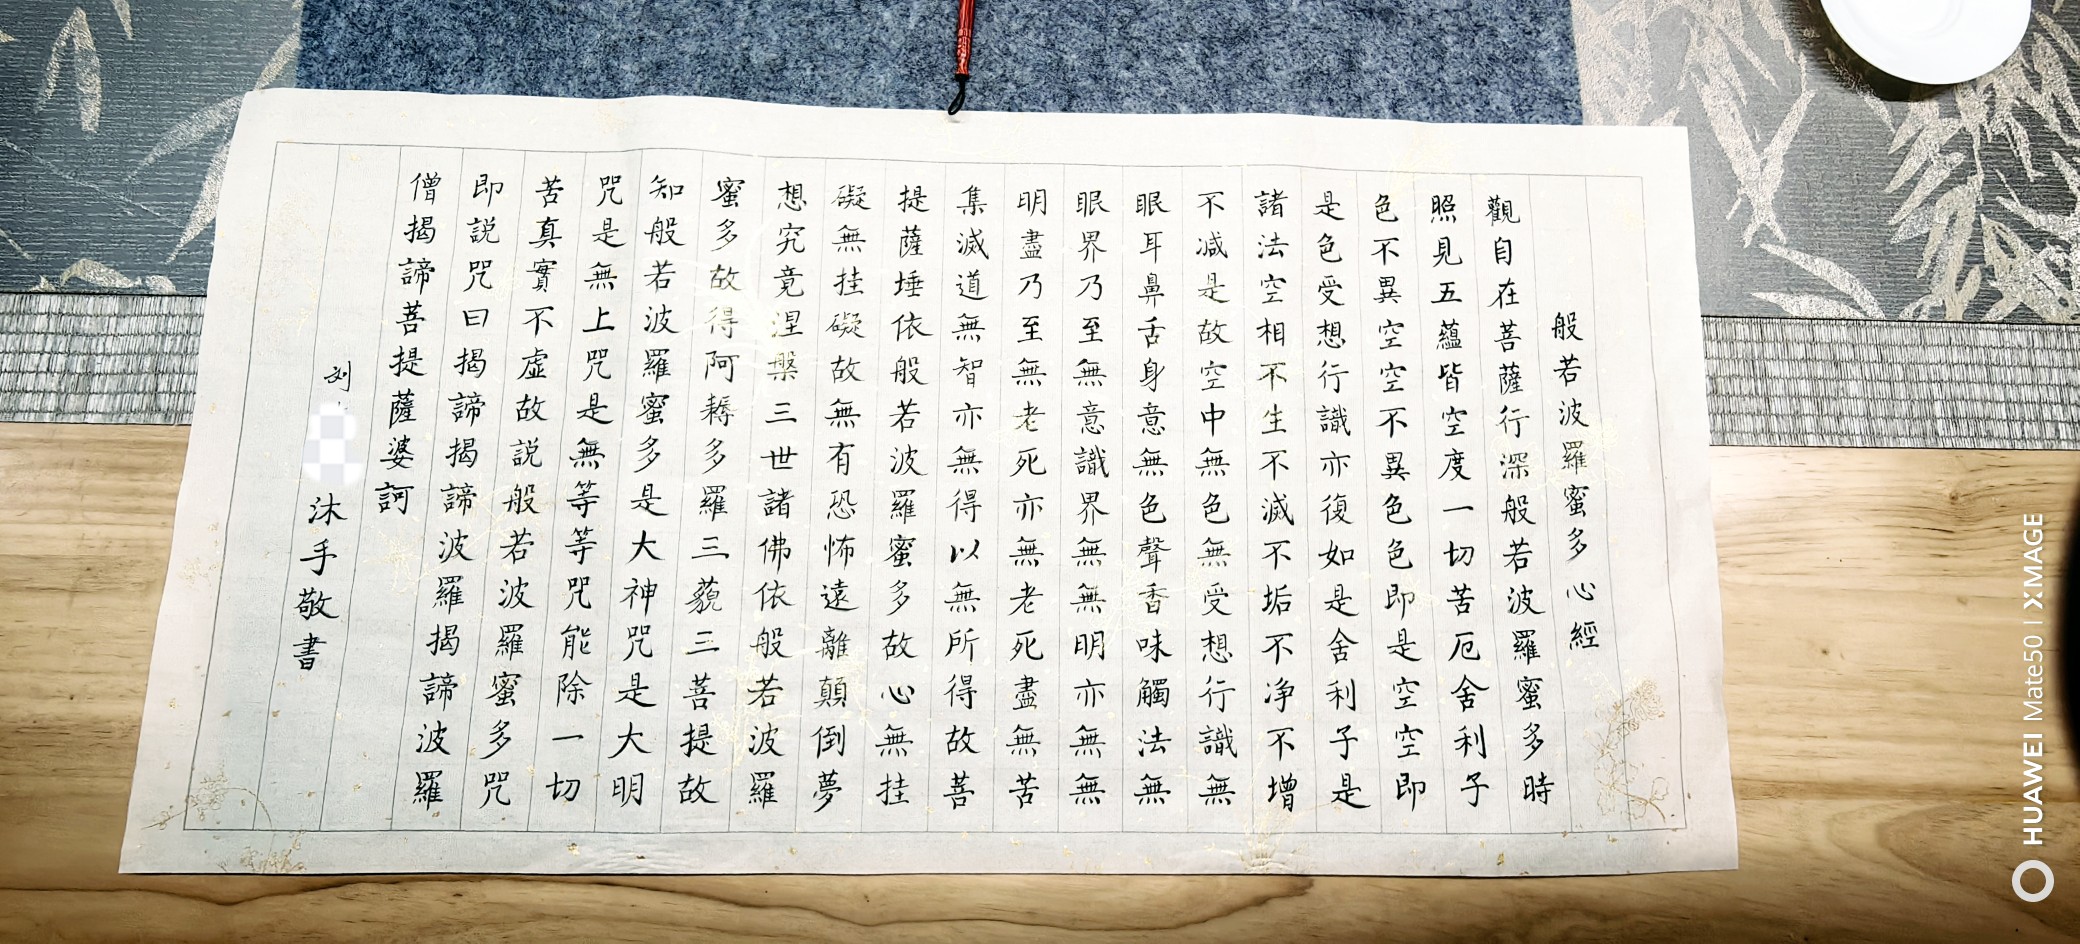 般若波羅蜜多心經
觀自在菩薩行深般若波羅蜜多時
照見五蘊皆空度一切苦厄舍利子
色不異空空不異色色即是空空即
是色受想行識亦復如是舍利子是
諸法空相不生不滅不垢不净不增
不减是故空中無色無受想行識無
眼耳鼻舌身意無色聲香味觸法無
眼界乃至無意識界無無明亦無無
明盡乃至無老死亦無老死盡無苦
集滅道無智亦無得以無所得故菩
提薩埵依般若波羅蜜多故心無挂
礙無挂礙故無有恐怖遠離顛倒夢
想究竟涅槃三世諸佛依般若波羅
蜜多故得阿耨多羅三藐三菩提故
知般若波羅蜜多是大神咒是大明
咒是無上咒是無等等咒能除一切
苦真實不虛故説般若波羅蜜多咒
即説咒曰揭諦揭諦波羅揭諦波羅
僧揭諦菩提薩婆訶
刘
沐手敬書
HUAWEI Mate50 | XMAGE